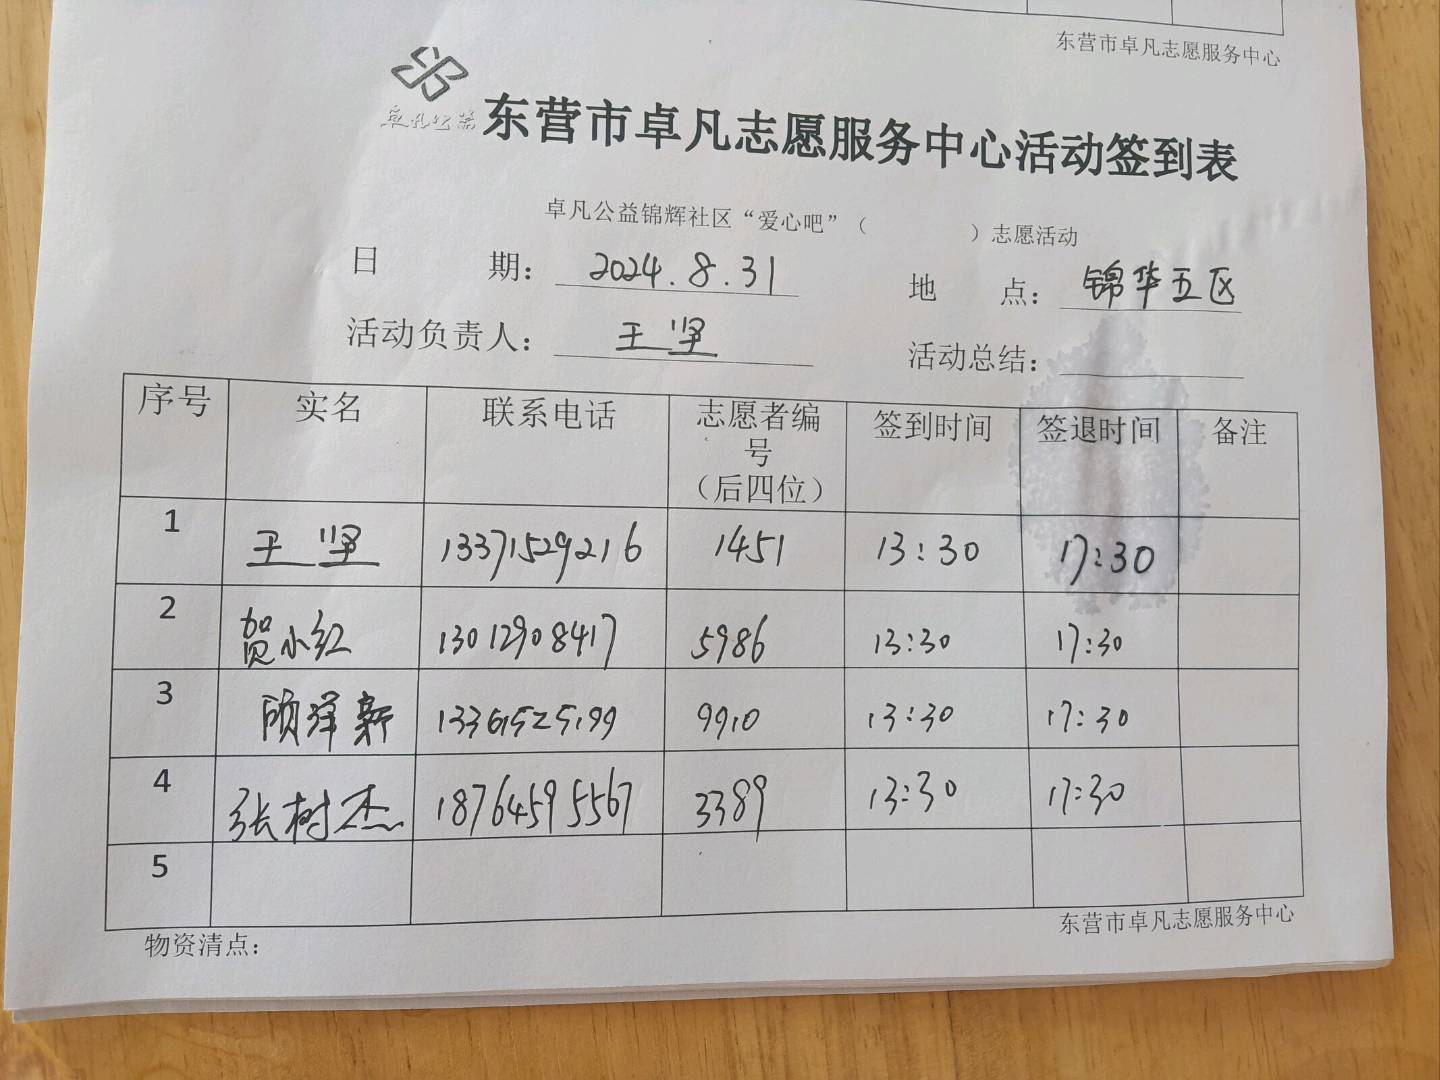 东营市卓凡志愿服务中心
卓凡公益
东营市卓凡志愿服务中心活动签到表
卓凡公益锦辉社区“爱心吧”（ ）志愿活动
日 期： 2024.8.31 地 点： 锦华五区
活动负责人： 王坚 活动总结：
序号 实名 联系电话 志愿者编号（后四位） 签到时间 签退时间 备注
1 王坚 13371529216 1451 13:30 17:30
2 贺小红 13012908417 5986 13:30 17:30
3 顾泽新 13361525199 9910 13:30 17:30
4 张树杰 18764595567 3389 13:30 17:30
5
物资清点： 东营市卓凡志愿服务中心